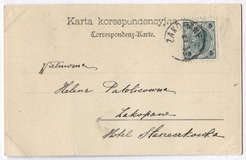 Karta korespondencyjna
Correspondenz-Karte.
Wielmożna
Helena
Zakopane
Hotel
ZAKOPANE
5 5